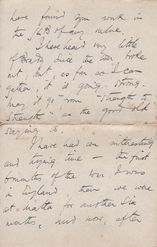 have found your work in
the of any value.
I have heard very little
of since the war broke
out, but, so far as I can
gather, it is going strong.
May it go from "Strength to
Strength" as the good old
saying is.
I have had an interesting
and trying time — the first
6 months of the war I was
in England, then we were
at Malta for another six
months, and now, after